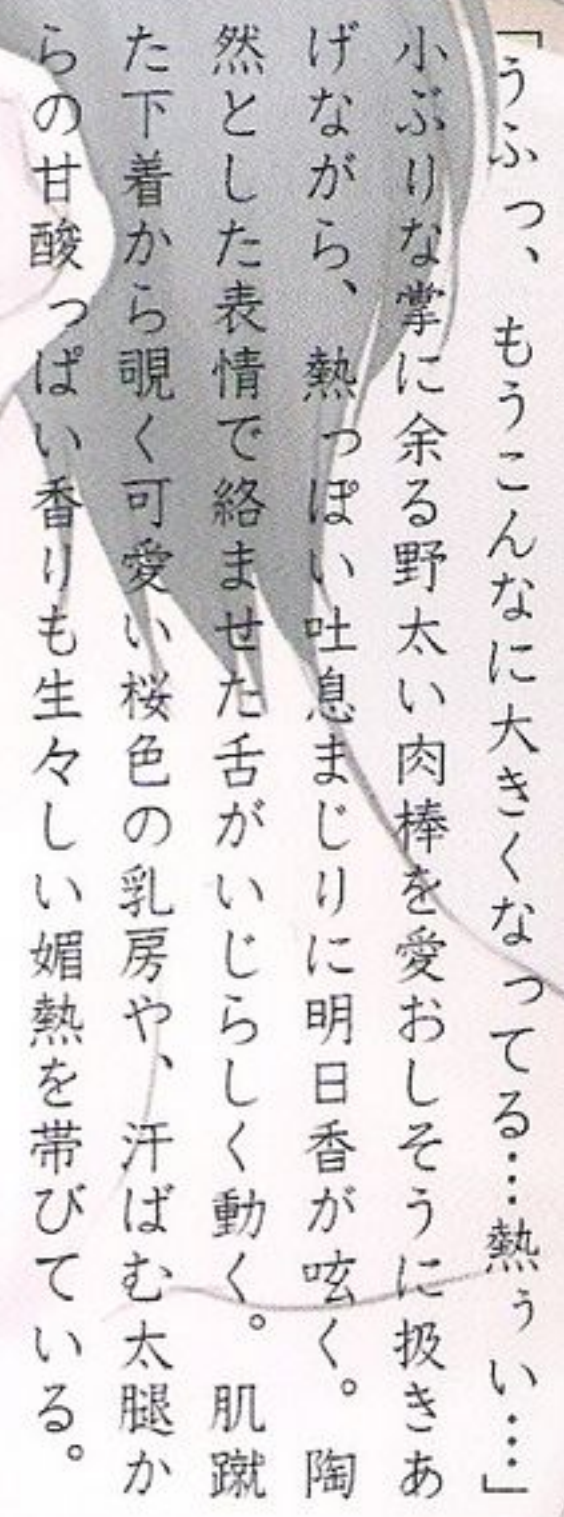 「うふっ、もうこんなに大きくなってる…熱ぅい…」
小ぶりな掌に余る野太い肉棒を愛おしそうに扱きあ
げながら、熱っぽい吐息まじりに明日香が呟く。陶
然とした表情で絡ませた舌がいじらしく動く。肌蹴
た下着から覗く可愛い桜色の乳房や、汗ばむ太腿か
らの甘酸っぱい香りも生々しい媚熱を帯びている。